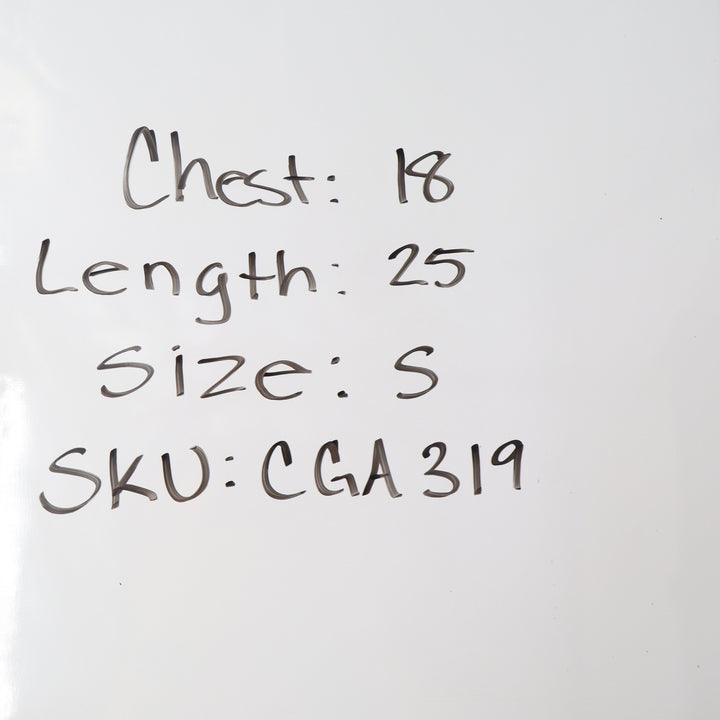 Chest: 18
Length: 25
Size: S
SKU: CGA319